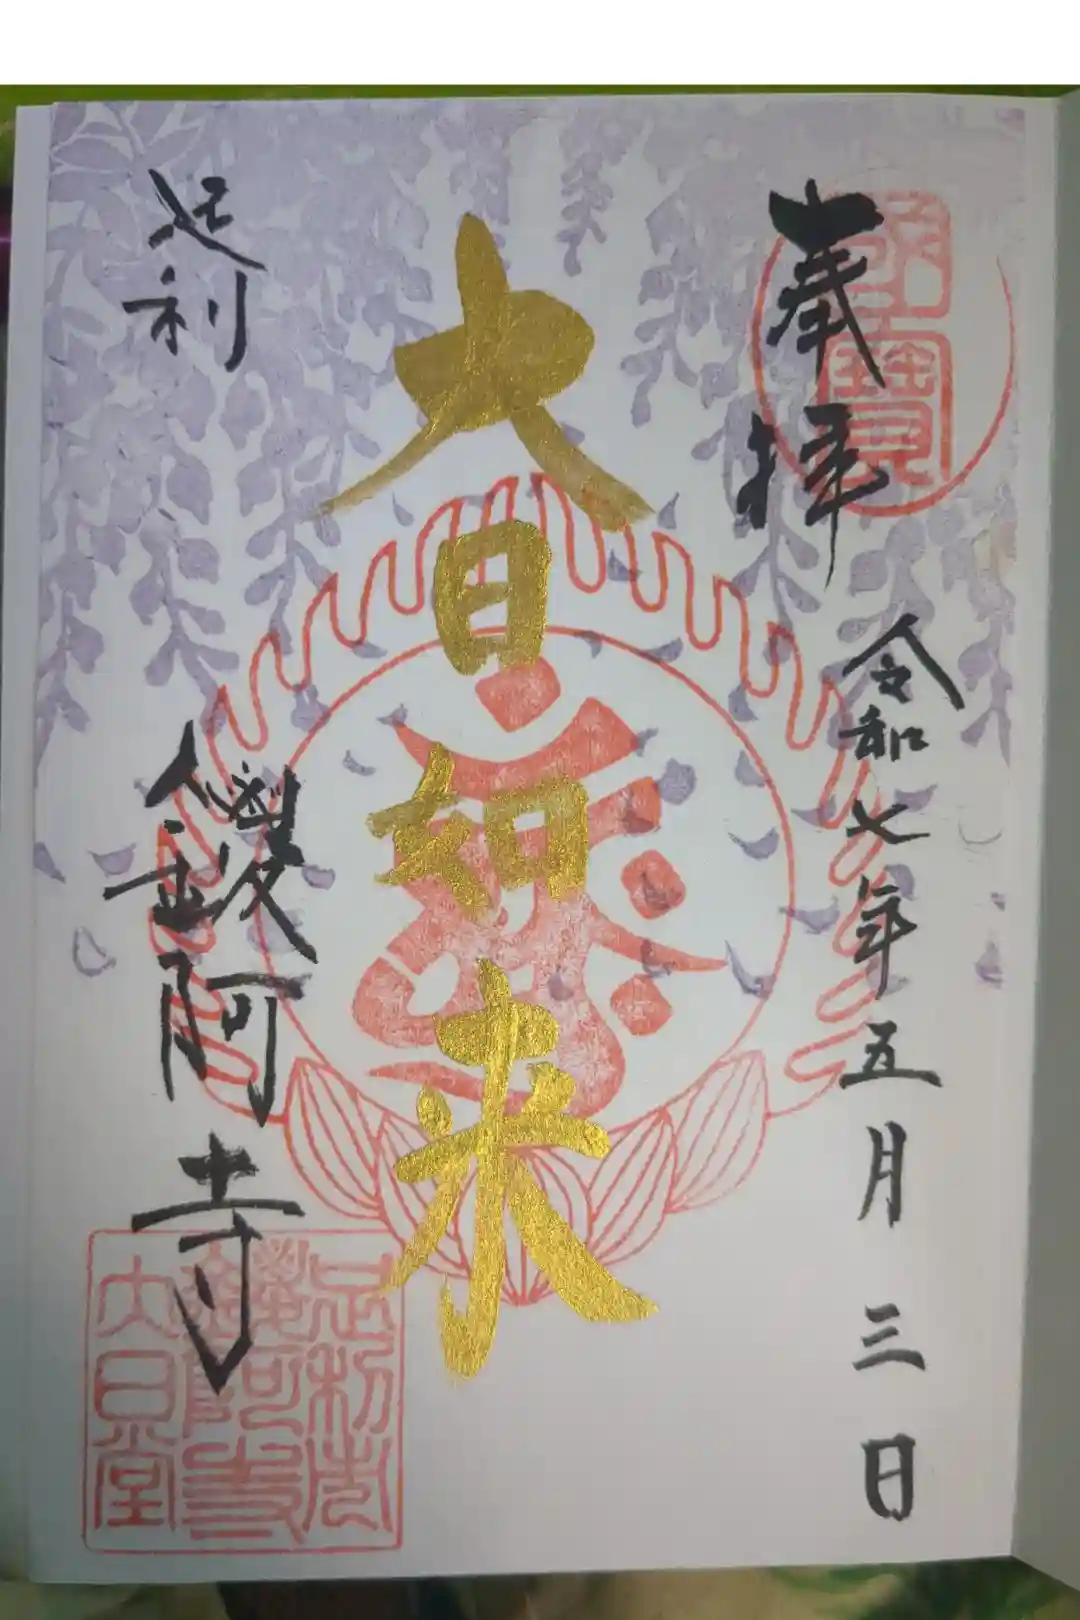 奉拝
令和七年五月三日
大日如来
足利
鑁阿寺
三寶
足利市
鑁阿寺
大日堂